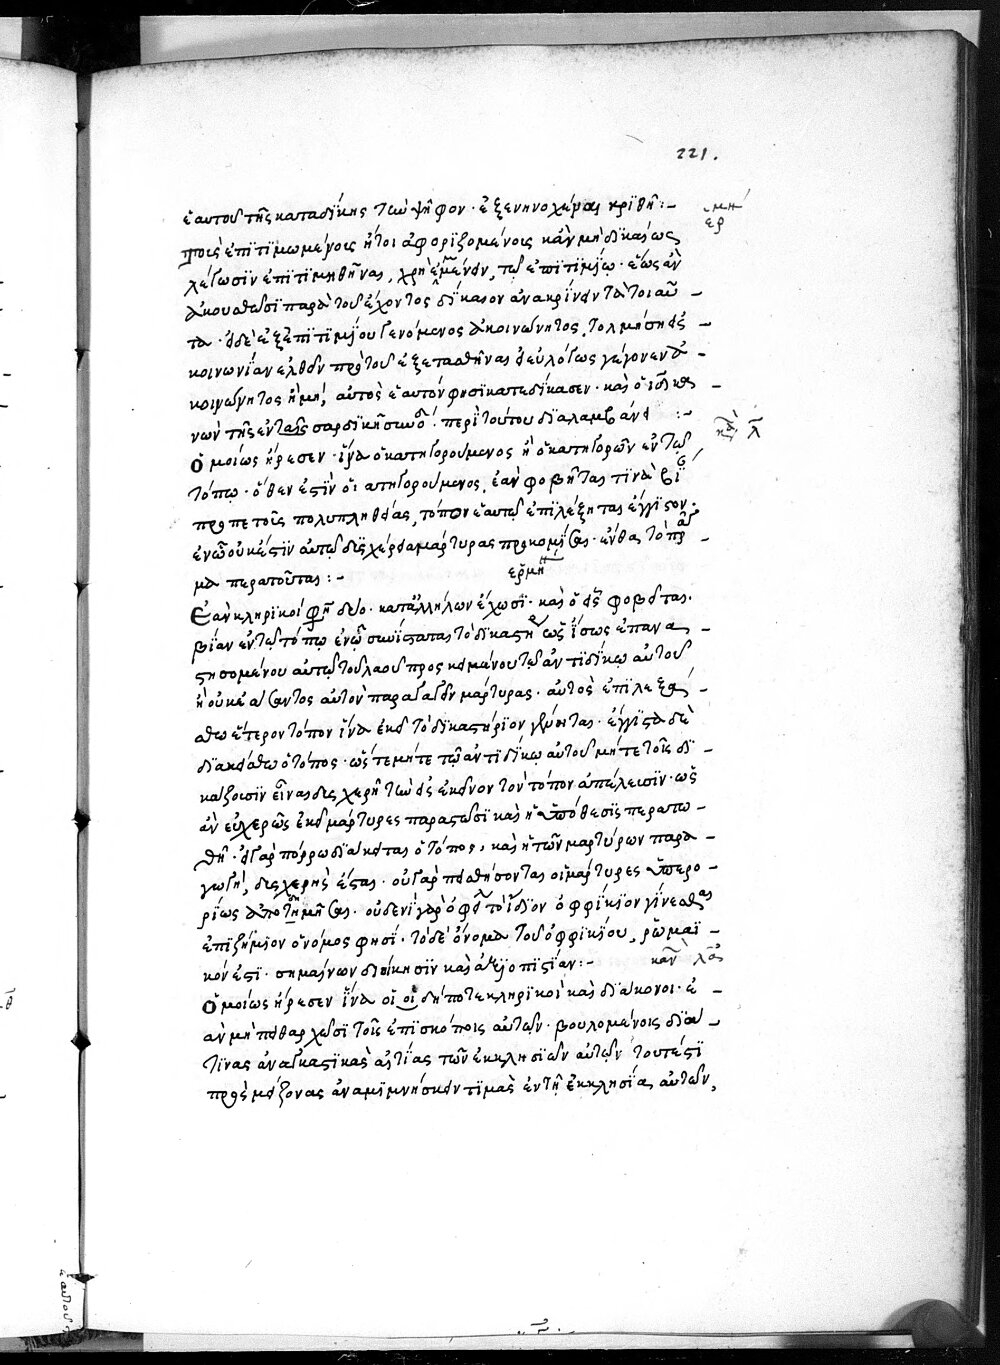 221.
ἑαυτοῦ τῆς καταδίκης τὴν ψῆφον · ἐξενηνοχέναι κριθῇ :-
ερμη
τοῖς ἐπιτιμωμένοις ἤτοι ἀφοριζομένοις κἂν μὴ δικαίως
λέγωσιν ἐπιτιμηθῆναι, χρὴ ἐμμένειν τῷ ἐπιτιμίῳ · ἕως ἂν
ἀκουσθῶσι παρὰ τοῦ ἔχοντος δίκαιον ἀνακρίνειν τὰ τοιαῦ -
τα · ὁ δὲ ἐξ ἐπιτιμίου γενόμενος ἀκοινώνητος, τολμήσῃ εἰς -
κοινωνίαν ἐλθεῖν πρὸ τοῦ ἐξετασθῆναι εἰ εὐλόγως γέγονεν ἀ -
κοινώνητος ἢ μή, αὐτὸς ἑαυτόν φησι κατεδίκασεν · καὶ ὁ κα -
νὼν τῆς ἐν σαρδικῇ συνόδου · περὶ τούτου διαλαμβάνει :-
καν λ
Ὁμοίως ἤρεσεν · ἵνα ὁ κατηγορούμενος ἢ ὁ κατηγορῶν ἐν τῷ
τόπῳ · ὅθεν ἐστὶν ὁ κατηγορούμενος, ἐὰν φοβῆται τινὰ βίαν
προπετοῦς πολυπληθείας, τόπον ἑαυτῷ ἐπιλέξηται ἔγγιστον ·
ἐν ᾧ οὐκ ἔστιν αὐτῷ δυσχέρεια μάρτυρας προκομίσαι · ἔνθα τὸ πρᾶ -
μα περατοῦται :-
ερμη
Ἐὰν κληρικοί φησι δύο · κατ' ἀλλήλων ἔχωσι · καὶ ὁ εἷς φοβεῖται
βίαν ἐν τῷ τόπῳ ἐν ᾧ συνίσταται τὸ δικαστήριον ὡς ἴσως ἐπανα -
στησομένου αὐτῷ τοῦ λαοῦ προσκειμένου τῷ ἀντιδίκῳ αὐτοῦ
ἢ οὐκ ἐάσαντος αὐτὸν παραγαγεῖν μάρτυρας · αὐτὸς ἐπιλεξά -
σθω ἕτερον τόπον ἵνα ἐκεῖ τὸ δικαστήριον γένηται · ἔγγιστα δὲ
διακείσθω ὁ τόπος · ὥστε μήτε τῷ ἀντιδίκῳ αὐτοῦ μήτε τοῖς δι -
κάζουσιν εἶναι δυσχερῆ τὴν εἰς ἐκεῖνον τὸν τόπον ἀπέλευσιν · ὡς
ἂν εὐχερῶς ἐκεῖ μάρτυρες παραστῶσι καὶ ἡ ὑπόθεσις περατω -
θῇ · εἰ γὰρ πόρρω διάκειται ὁ τόπος, καὶ ἡ τῶν μαρτύρων παρα -
γωγή, δυσχερὴς ἔσται · οὐ γὰρ πεισθήσονται οἱ μάρτυρες ὑπερο -
ρίως ἀποδημῆσαι · οὐδενὶ γὰρ ὀφείλει τὸ ἴδιον ὀφφίκιον γίνεσθαι
ἐπιζήμιον ὁ νόμος φησί · τὸ δὲ ὄνομα τοῦ ὀφφικίου, ῥωμαϊ -
κόν ἐστι · σημαῖνον διοίκησιν καὶ ἀξιοπιστίαν :-
καν λα
Ὁμοίως ἤρεσεν ἵνα οἱ οἱδήποτε κληρικοὶ καὶ διάκονοι · ἐ -
ὰν μὴ πειθαρχῶσι τοῖς ἐπισκόποις αὐτῶν · βουλομένοις διά -
τινας ἀναγκαστικὰς αἰτίας τῶν ἐκκλησιῶν αὐτῶν τουτέστι
πρὸς μείζονας ἀναμιμνήσκειν τιμὰς ἐν τῇ ἐκκλησίᾳ αὐτῶν,